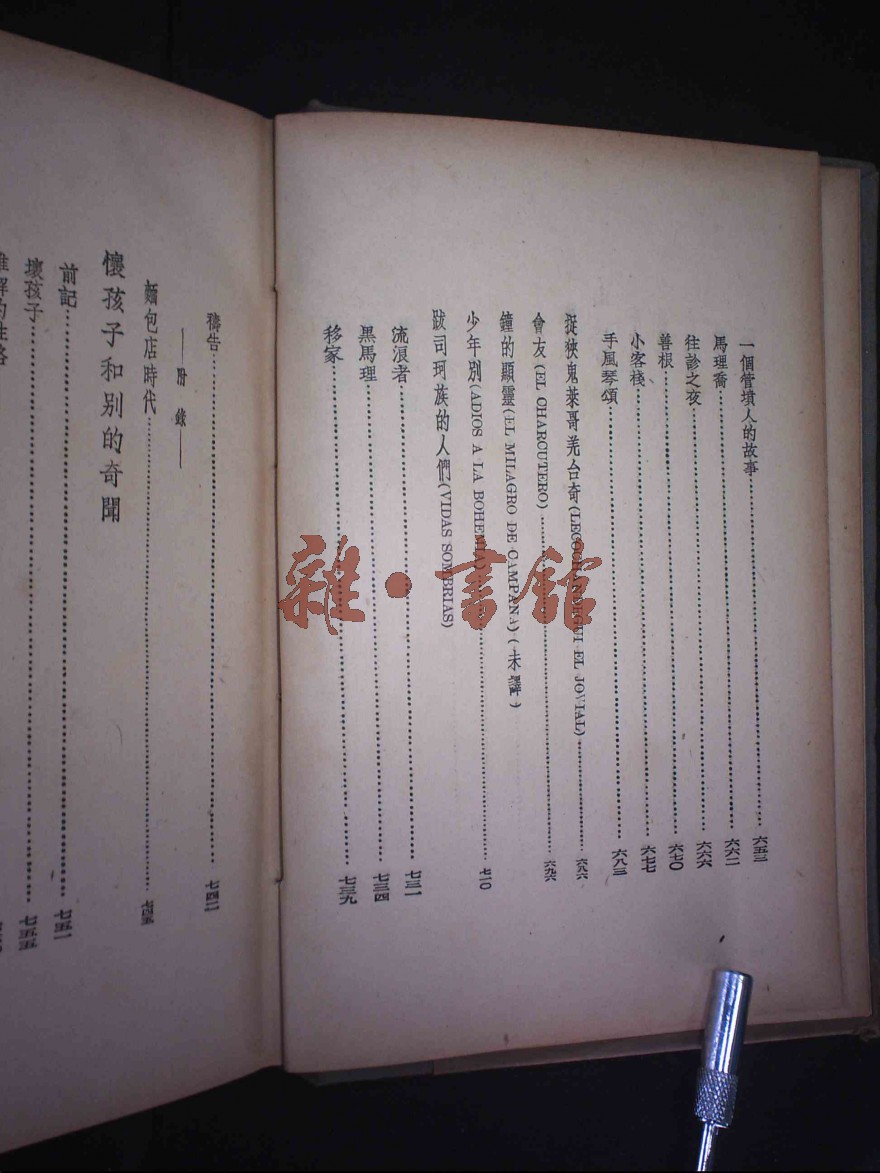 一個管墳人的故事……六五三
馬理喬……六六二
往診之夜……六六六
善根……六七〇
小客棧……六七七
手風琴頌……六八三
捉狹鬼萊哥羌台奇(LECOCHANDEGUI EL JOVIAL)……六八六
會友(EL CHARCUTERO)……六九六
鐘的顯靈(EL MILAGRO DE CAMPANA)(未譯)
少年別(ADIOS A LA BOHEMIA)……七一〇
跋司珂族的人們(VIDAS SOMBRIAS)
流浪者……七三一
黑馬理……七三四
移家……七三九
禱告……七四二
——附錄——
麵包店時代……七四五
壞孩子和別的奇聞
前記……七五一
壞孩子……七五五
難解的性格
雜·書館